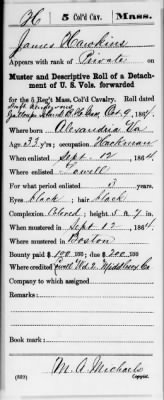 H 5 Col'd Cav. Mass.
James Hawkins
Appears with rank of Private on
Muster and Descriptive Roll of a Detach-
ment of U. S. Vols. forwarded
for the 5 Reg't Mass. Col'd Cavalry. Roll dated
Gallops Island B. H. Mass, Oct. 9, 1864.
Where born Alexandria Va
Age 33 y'rs; occupation Hackman
When enlisted Sept. 12, 1864
Where enlisted Lowell
For what period enlisted 3 years.
Eyes black; hair black
Complexion Col'red; height 5 ft. 7 in.
When mustered in Sept. 12, 1864
Where mustered in Boston
Bounty paid $ 100; due $ 200 100
Where credited Lowell Wd. 2. Middlesex Co
Company to which assigned
Remarks:
Book mark:
M. A. Michaels
(339) Copyist.